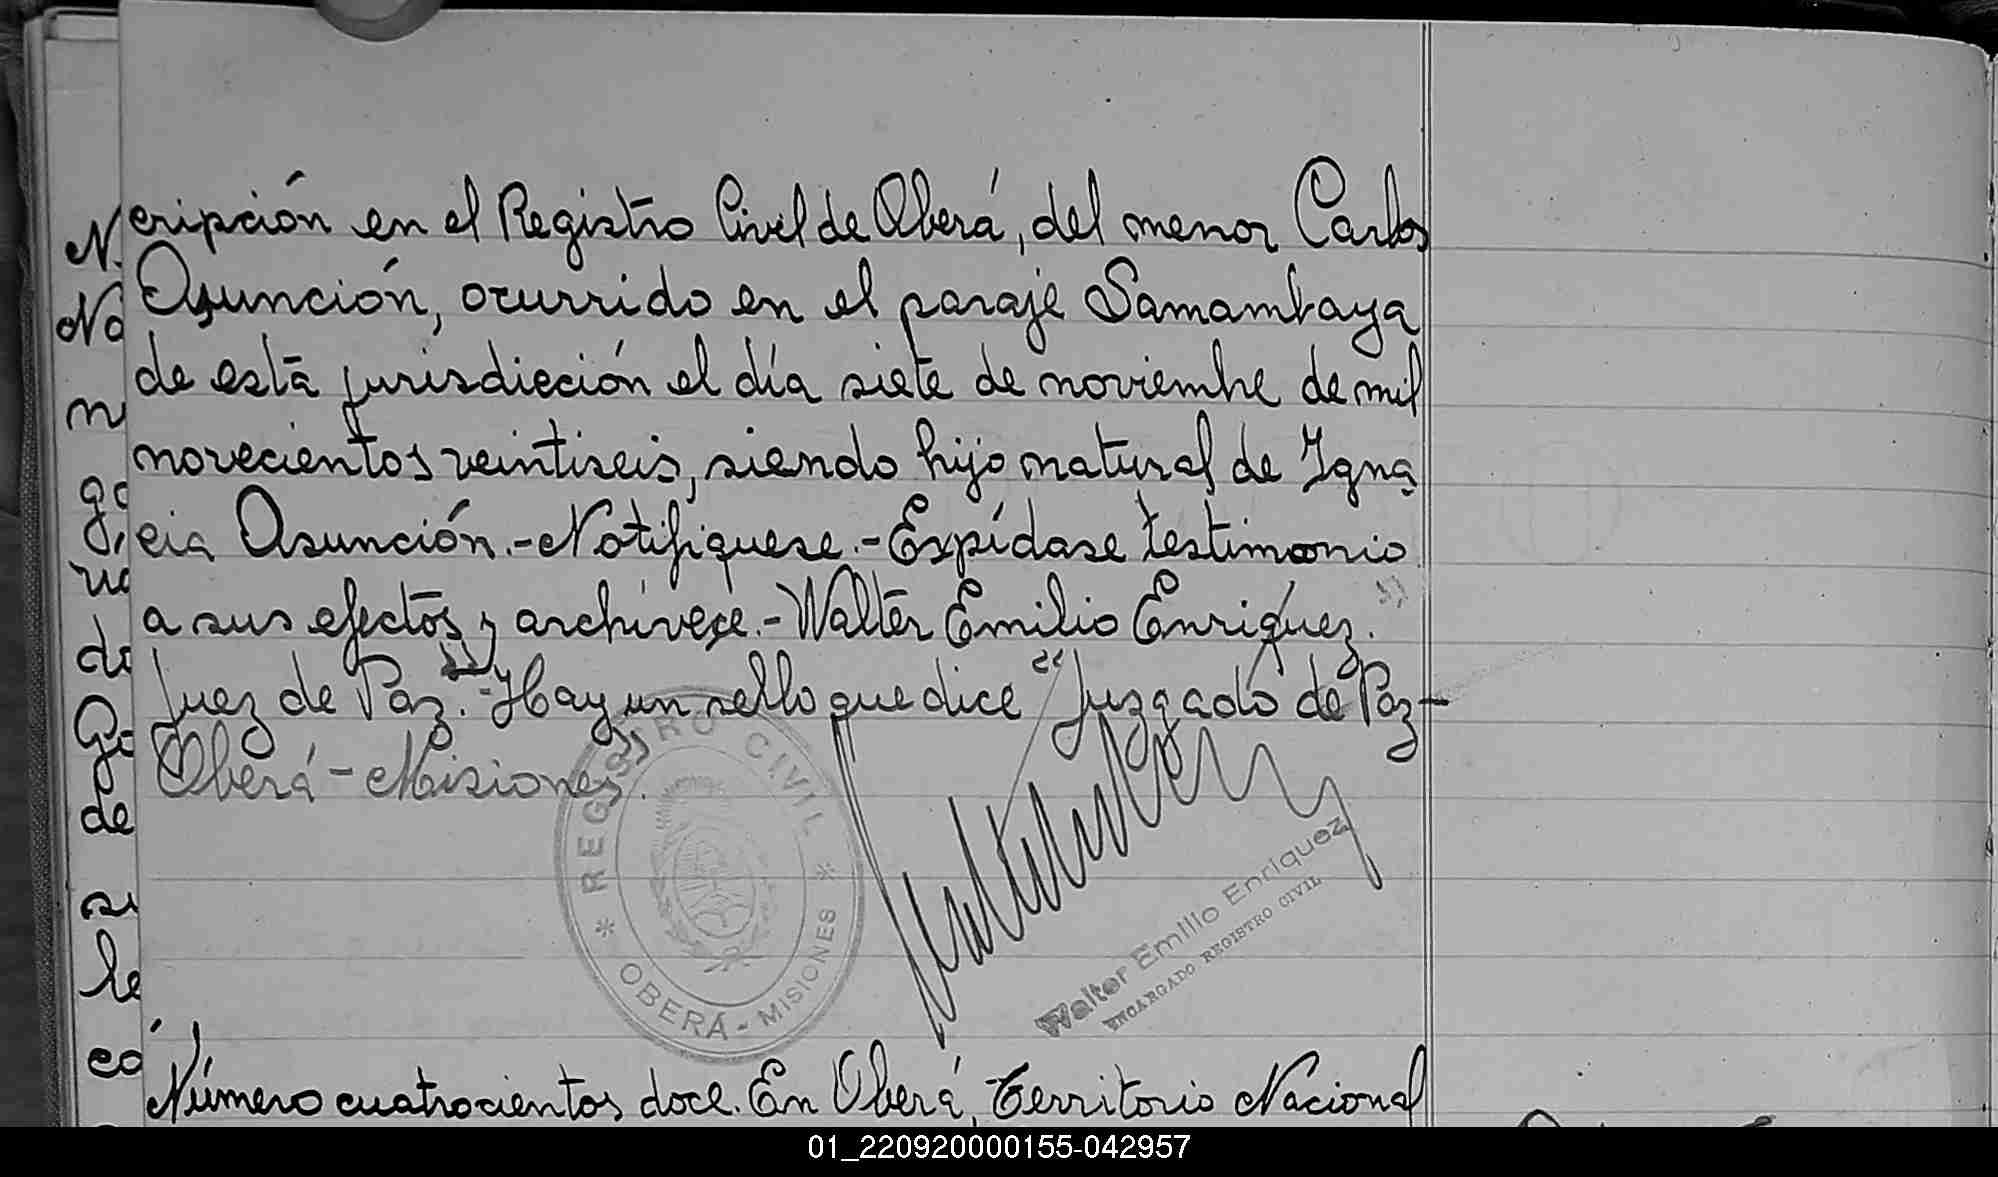 cripción en el Registro Civil de Oberá, del menor Carlos
Asunción, ocurrido en el paraje Samambaya
de está jurisdicción el día siete de noviembre de mil
novecientos veintiseis, siendo hijo natural de Igna
cia Asunción.-Notifíquese.-Expídase testimonio
a sus efectos y archívese.-Walter Emilio Enriquez.
Juez de Paz".-Hay un sello que dice "Juzgado de Paz-
Oberá-Misiones".
REGISTRO CIVIL
OBERÁ-MISIONES
Walter Emilio Enriquez
ENCARGADO REGISTRO CIVIL
Número cuatrocientos doce. En Oberá, Territorio Nacional
01_220920000155-042957